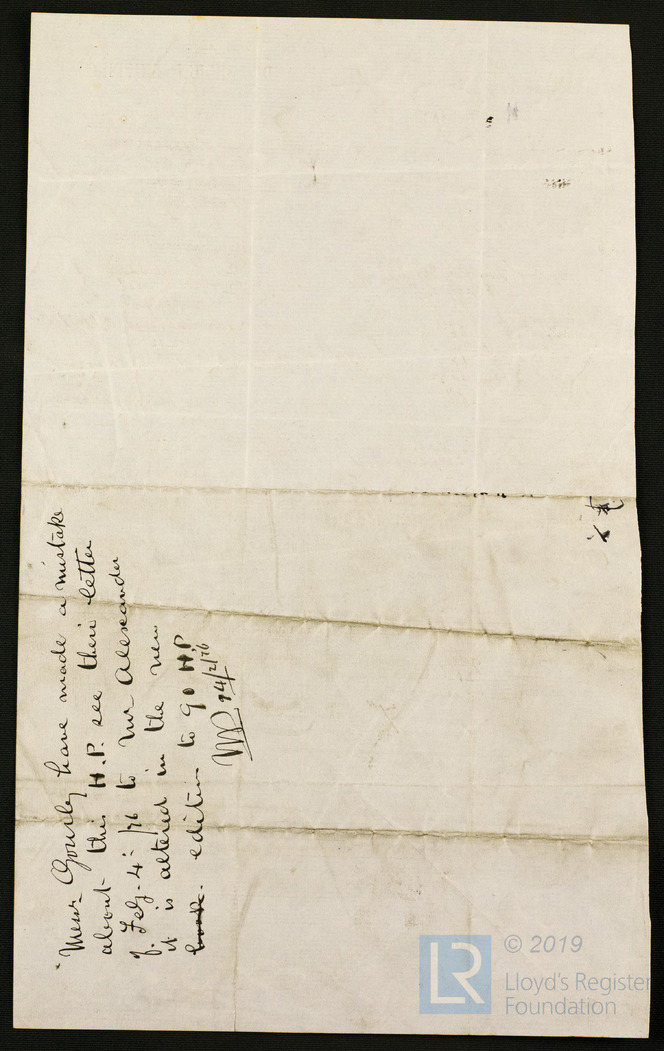 "Messrs Gourlay have made a mistake
about this H.P. see their letter
of Feb. 4: /76 to Mr Alexander
it is altered in the new
book. edition to 90 H.P
24/2/76
LR © 2019
Lloyd's Register
Foundation